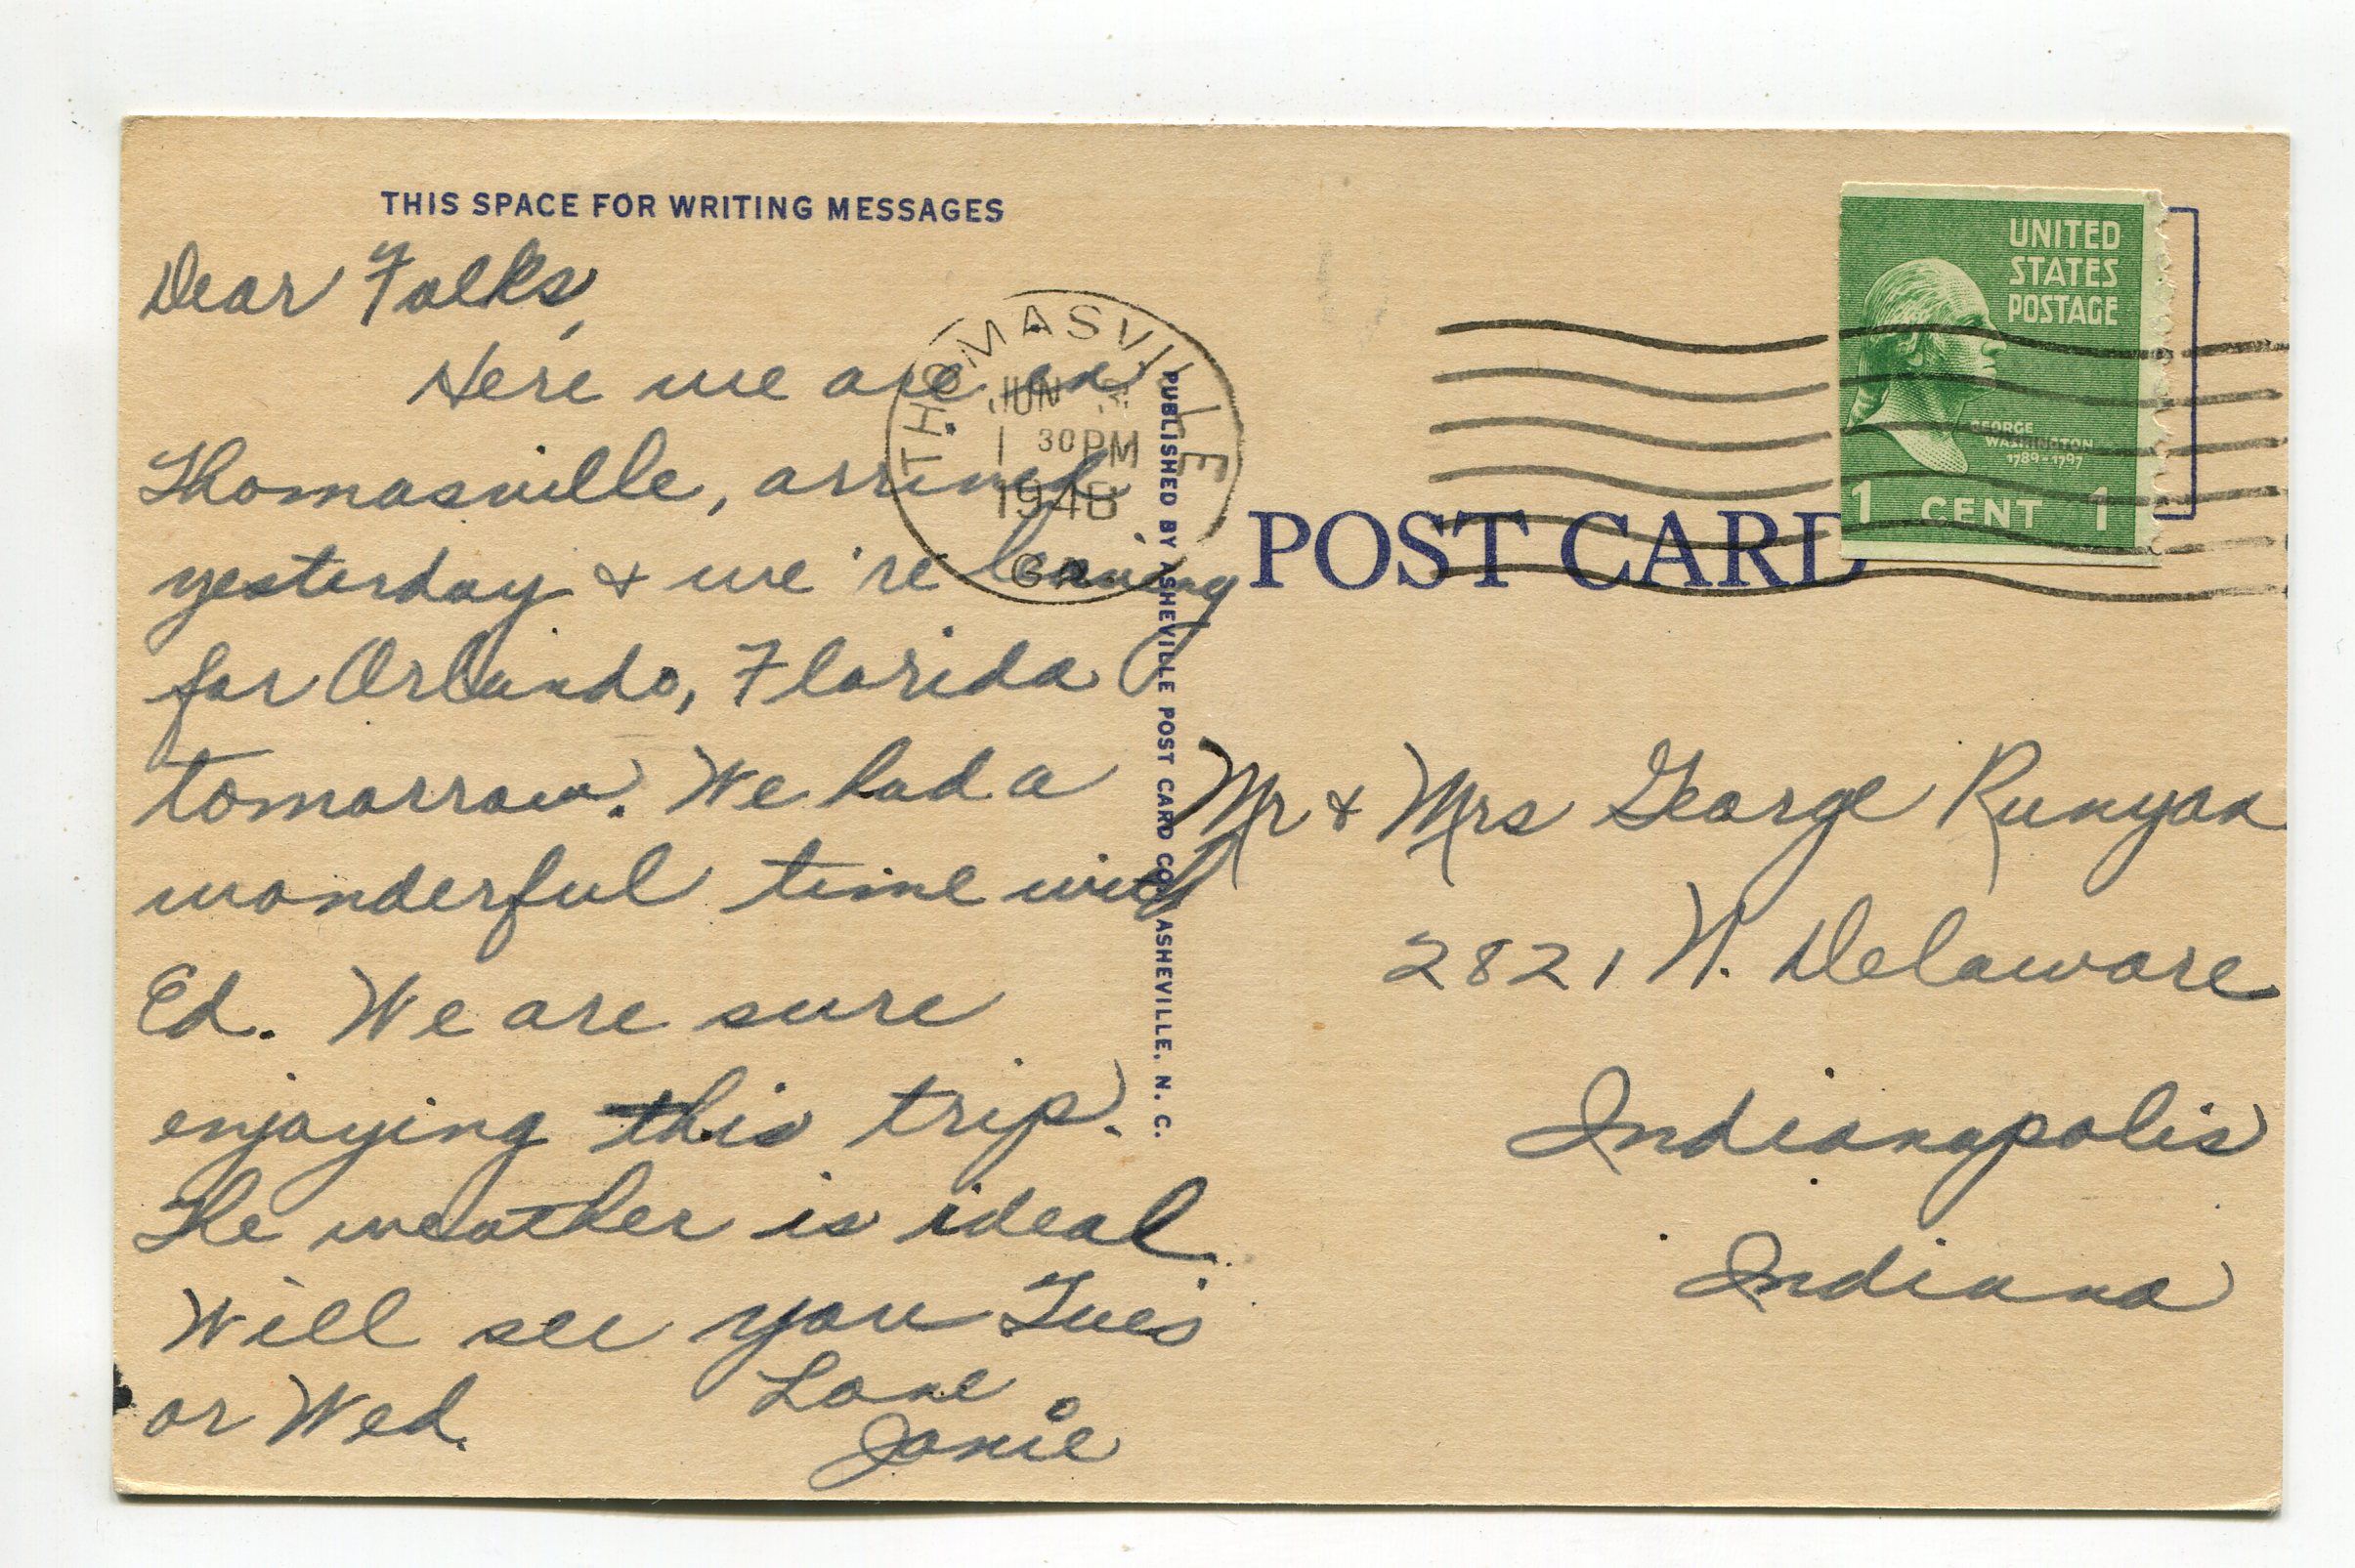 THIS SPACE FOR WRITING MESSAGES
Dear Folks,
Here we are in
Thomasville, arrived
yesterday & we're leaving
for Orlando, Florida
tomorrow. We had a
wonderful time with
Ed. We are sure
enjoying this trip.
The weather is ideal.
Will see you Tues
or Wed.
Love
Janie
THOMASVILLE
JUN
1 30 PM
1948
GA.
PUBLISHED BY ASHEVILLE POST CARD CO., ASHEVILLE, N. C.
POST CARD
UNITED
STATES
POSTAGE
GEORGE
WASHINGTON
1789-1797
1 CENT 1
Mr & Mrs George Runyan
2821 N. Delaware
Indianapolis
Indiana